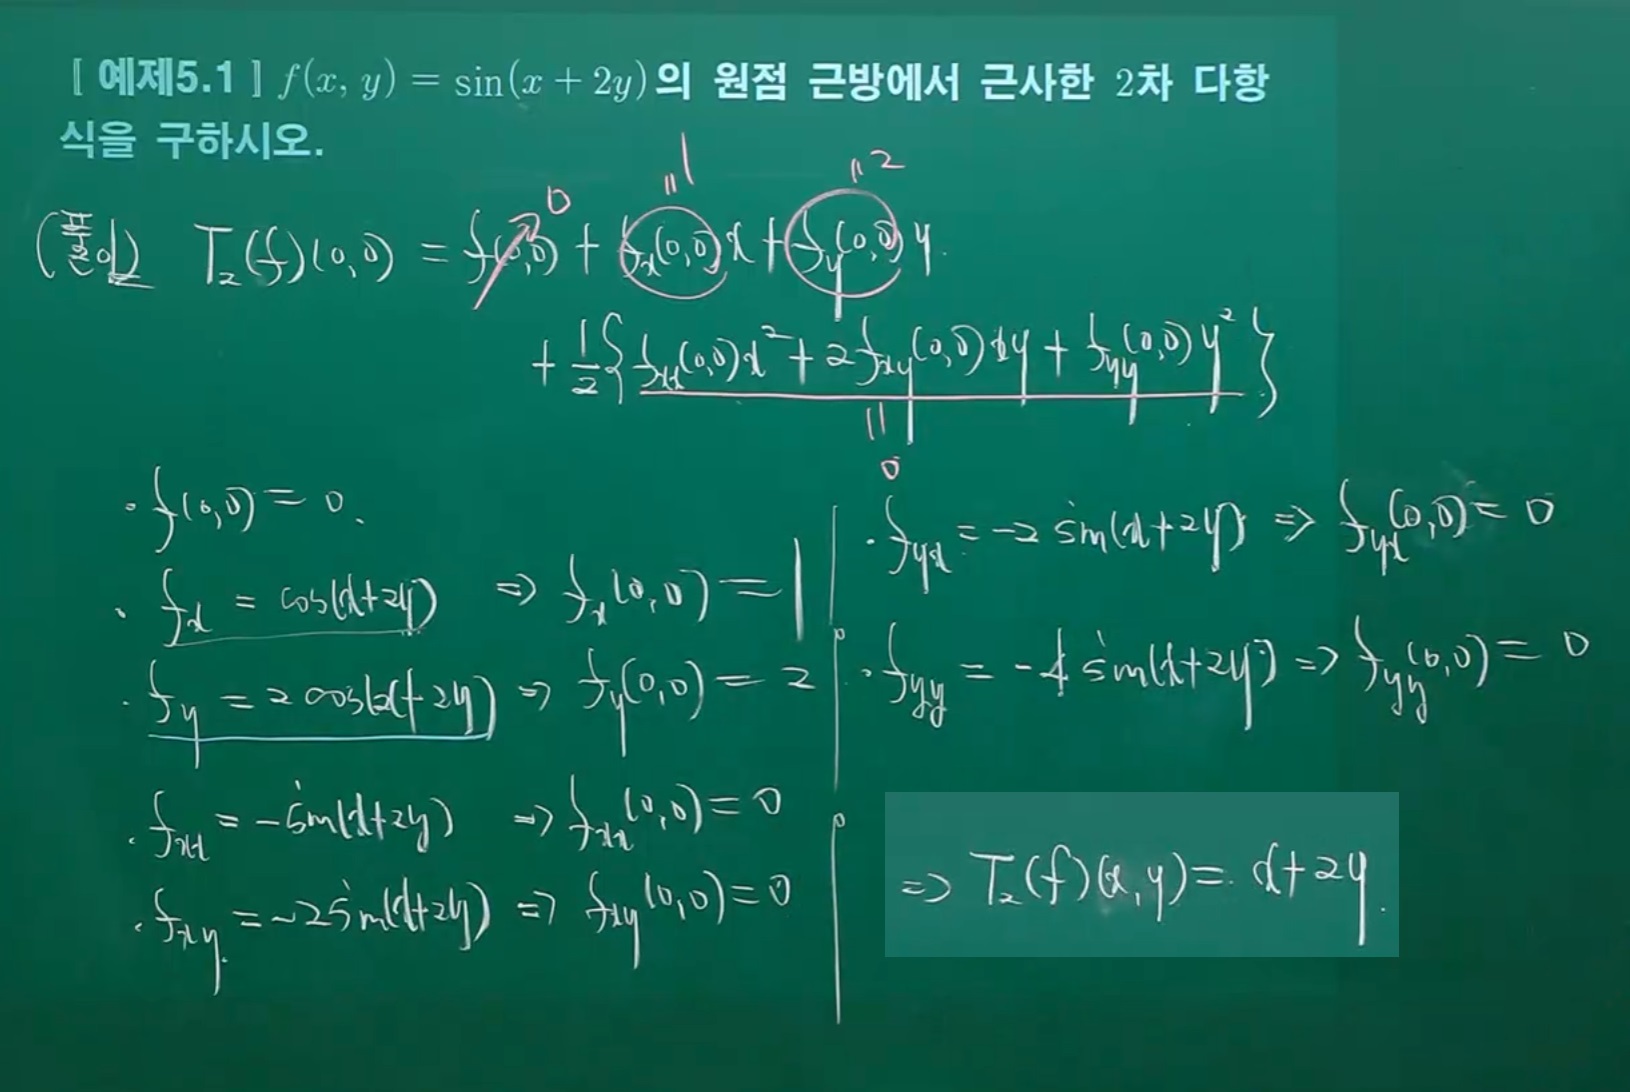 [ 예제5.1 ] f(x, y) = sin(x + 2y)의 원점 근방에서 근사한 2차 다항
식을 구하시오.
0 "1 "2
(풀이) T₂(f)(0,0) = f(0,0) + fₓ(0,0)x + f_y(0,0)y.
+ 1/2{fₓₓ(0,0)x² + 2fₓy(0,0)xy + f_yy(0,0)y²}
"
0
· f(0,0) = 0.
· fₓ = cos(x+2y) ⇒ fₓ(0,0) = 1
· f_y = 2cos(x+2y) ⇒ f_y(0,0) = 2
· fₓₓ = -sin(x+2y) ⇒ fₓₓ(0,0) = 0
· fₓy = -2sin(x+2y) ⇒ fₓy(0,0) = 0
· f_yx = -2sin(x+2y) ⇒ f_yx(0,0) = 0
· f_yy = -4sin(x+2y) ⇒ f_yy(0,0) = 0
⇒ T₂(f)(x,y) = x+2y.